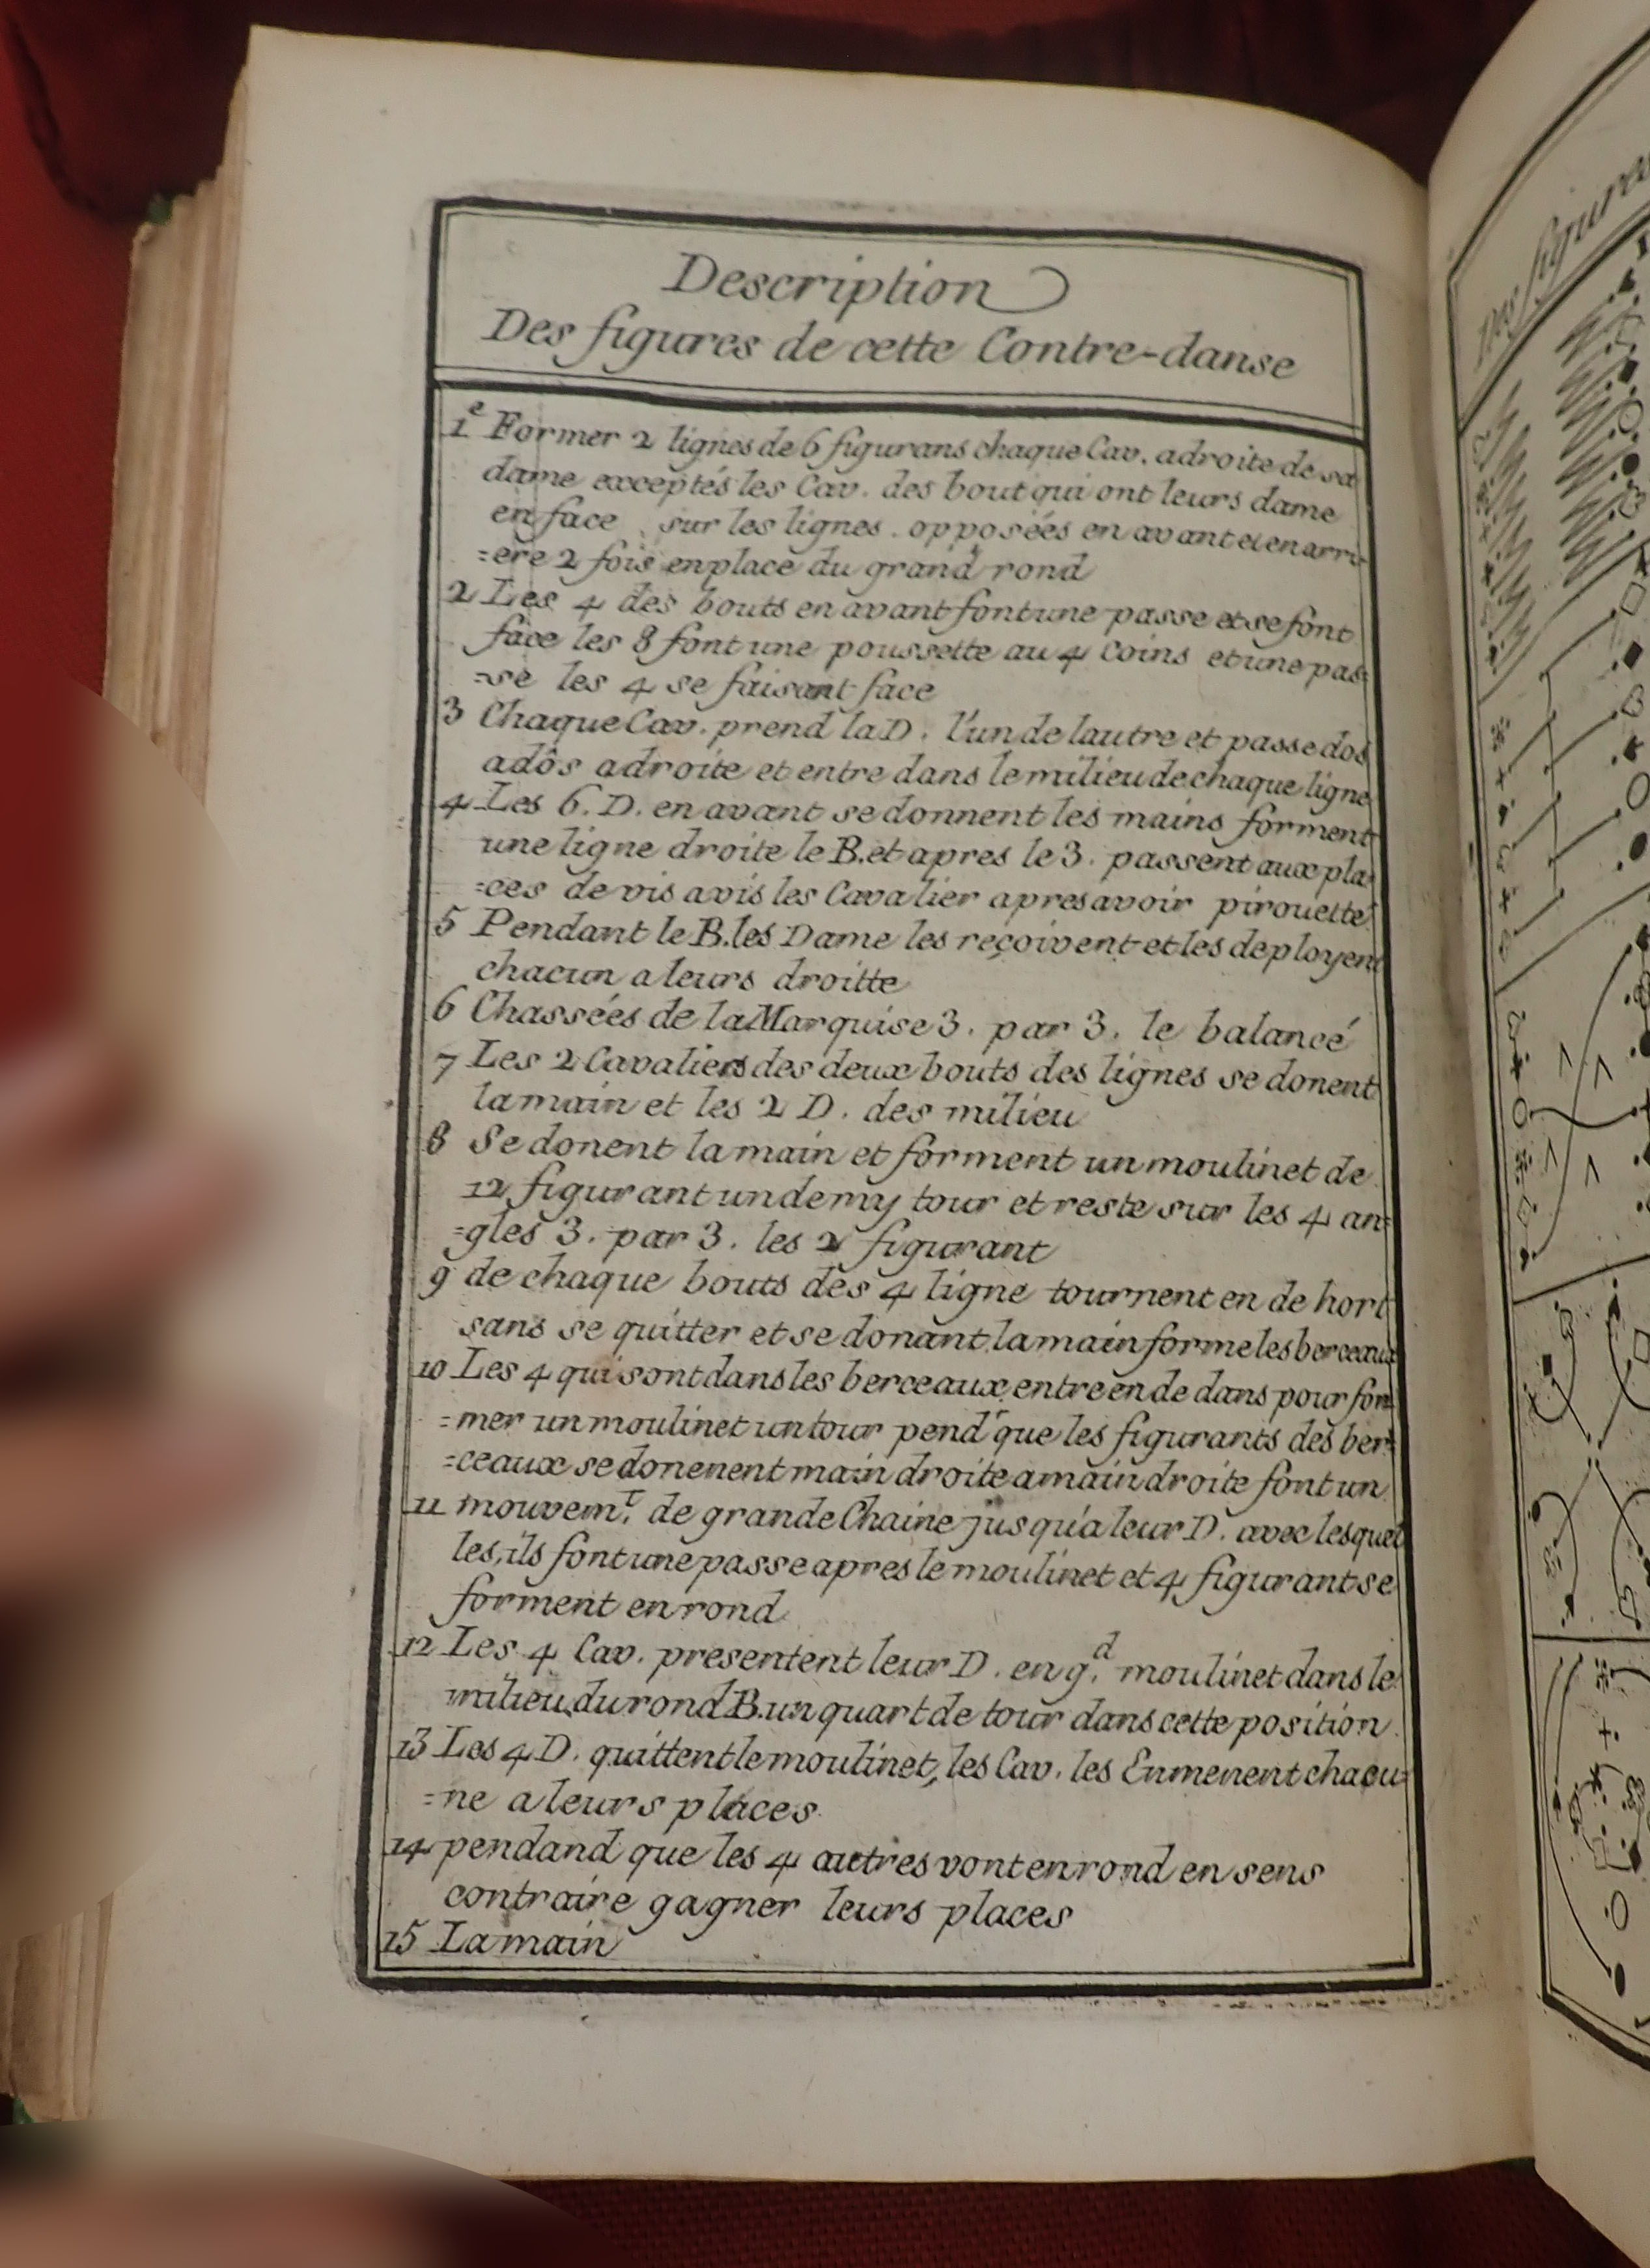 Description
Des figures de cette Contre-danse
1e Former 2 lignes de 6 figurans chaque Cav. a droite de sa
dame exceptés les Cav. des bout qui ont leurs dame
en face sur les lignes opposées en avant et en arri-
=ere 2 fois en place du grand rond
2 Les 4 des bouts en avant font une passe et se font
face les 8 font une poussette au 4 Coins et une pas=
=se les 4 se faisant face
3 Chaque Cav. prend la D. l'un de lautre et passe dos
a dôs a droite et entre dans le milieu de chaque ligne
4 Les 6. D. en avant se donnent les mains forment
une ligne droite le B. et apres le 3. passent aux pla=
=ces de vis a vis les Cavalier apres avoir pirouetté
5 Pendant le B. les Dame les reçoivent et les deployent
chacun a leurs droitte
6 Chassées de la Marquise 3. par 3. le balancé
7 Les 2 Cavaliers des deux bouts des lignes se donent
la main et les 2 D. des milieu
8 Se donent la main et forment un moulinet de
12 figurant un demy tour et reste sur les 4 an=
=gles 3. par 3. les 2 figurant
9 de chaque bouts des 4 ligne tournent en de hort
sans se quitter et se donant la main forme les berceaux
10 Les 4 qui sont dans les berceaux entre en de dans pour for
=mer un moulinet un tour pendt que les figurants des ber=
=ceaux se donenent main droite a main droite font un
11 mouvemt. de grande Chaine jus qu'a leur D. avec lesquel
les, ils font une passe apres le moulinet et 4 figurant se
forment en rond
12 Les 4 Cav. presentent leur D. en gd. moulinet dans le
milieu du rond B. un quart de tour dans cette position
13 Les 4 D. quittent le moulinet, les Cav. les Enmenent chacu=
=ne a leurs places
14 pendand que les 4 autres vont en rond en sens
contraire gagner leurs places
15 La main
Des figures